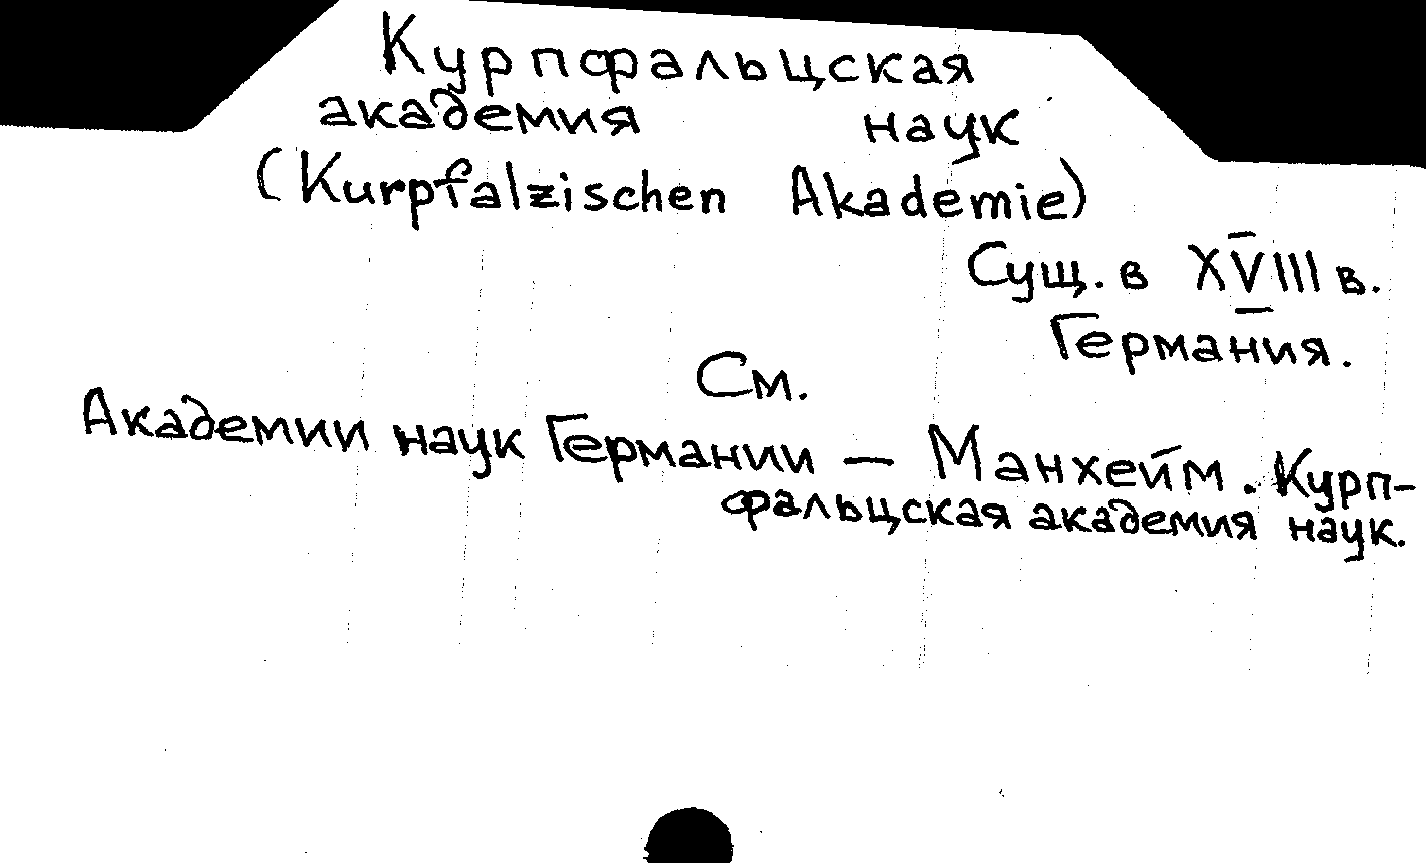 Курпфальцская
академия наук
(Kurpfalzischen Akademie)
Сущ. в XVIII в.
Германия.
См.
Академии наук Германии — Манхейм. Курп-
фальцская академия наук.